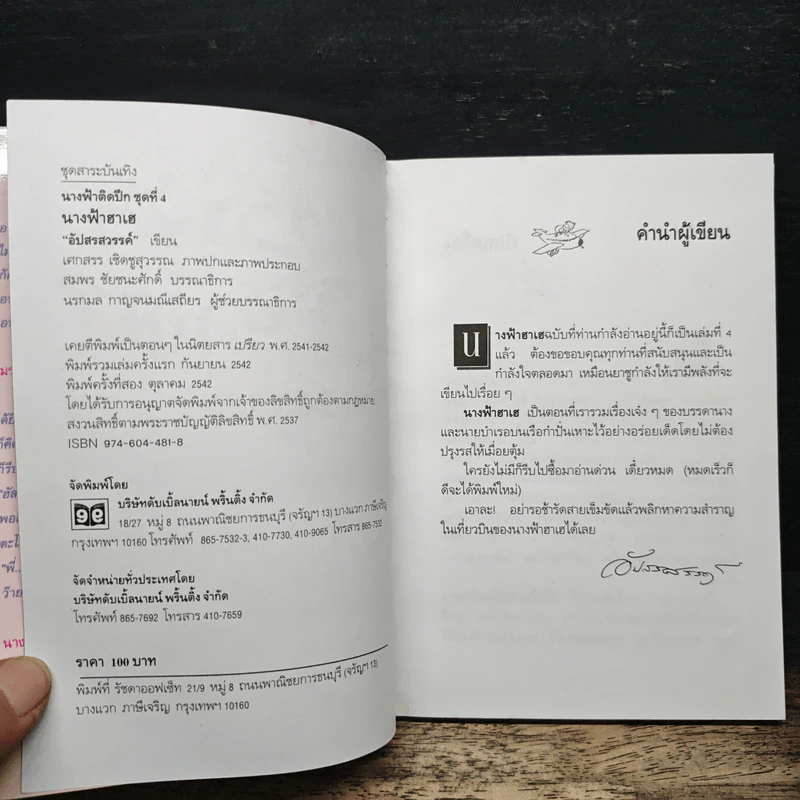 ชุดสาระบันเทิง
นางฟ้าติดปีก ชุดที่ 4
นางฟ้าฮาเฮ
"อัปสรสวรรค์" เขียน
เศกสรร เชิดชูสุวรรณ ภาพปกและภาพประกอบ
สมพร ชัยชนะศักดิ์ บรรณาธิการ
นรกมล กาญจนมณีเสถียร ผู้ช่วยบรรณาธิการ
เคยตีพิมพ์เป็นตอนๆ ในนิตยสาร เปรียว พ.ศ. 2541-2542
พิมพ์รวมเล่มครั้งแรก กันยายน 2542
พิมพ์ครั้งที่สอง ตุลาคม 2542
โดยได้รับการอนุญาตจัดพิมพ์จากเจ้าของลิขสิทธิ์ถูกต้องตามกฎหมาย
สงวนลิขสิทธิ์ตามพระราชบัญญัติลิขสิทธิ์ พ.ศ. 2537
ISBN 974-604-481-8
จัดพิมพ์โดย
บริษัทดับเบิ้ลนายน์ พริ้นติ้ง จำกัด
18/27 หมู่ 8 ถนนพาณิชยการธนบุรี (จรัญฯ 13) บางแวก ภาษีเจริญ
กรุงเทพฯ 10160 โทรศัพท์ 865-7532-3, 410-7730, 410-9065 โทรสาร 865-7532
จัดจำหน่ายทั่วประเทศโดย
บริษัทดับเบิ้ลนายน์ พริ้นติ้ง จำกัด
โทรศัพท์ 865-7692 โทรสาร 410-7659
ราคา 100 บาท
พิมพ์ที่ รัชดาออฟเซ็ท 21/9 หมู่ 8 ถนนพาณิชยการธนบุรี (จรัญฯ 13)
บางแวก ภาษีเจริญ กรุงเทพฯ 10160
คำนำผู้เขียน
นางฟ้าฮาเฮฉบับที่ท่านกำลังอ่านอยู่นี้ก็เป็นเล่มที่ 4
แล้ว ต้องขอขอบคุณทุกท่านที่สนับสนุนและเป็น
กำลังใจตลอดมา เหมือนยาชูกำลังให้เรามีพลังที่จะ
เขียนไปเรื่อย ๆ
นางฟ้าฮาเฮ เป็นตอนที่เรารวมเรื่องเจ๋ง ๆ ของบรรดานาง
และนายบำเรอบนเรือกำปั่นเหาะไว้อย่างอร่อยเด็ดโดยไม่ต้อง
ปรุงรสให้เมื่อยตุ้ม
ใครยังไม่มีก็รีบไปซื้อมาอ่านด่วน เดี๋ยวหมด (หมดเร็วก็
ดีจะได้พิมพ์ใหม่)
เอาละ! อย่ารอช้ารัดสายเข็มขัดแล้วพลิกหาความสำราญ
ในเที่ยวบินของนางฟ้าฮาเฮได้เลย
อัปสรสวรรค์